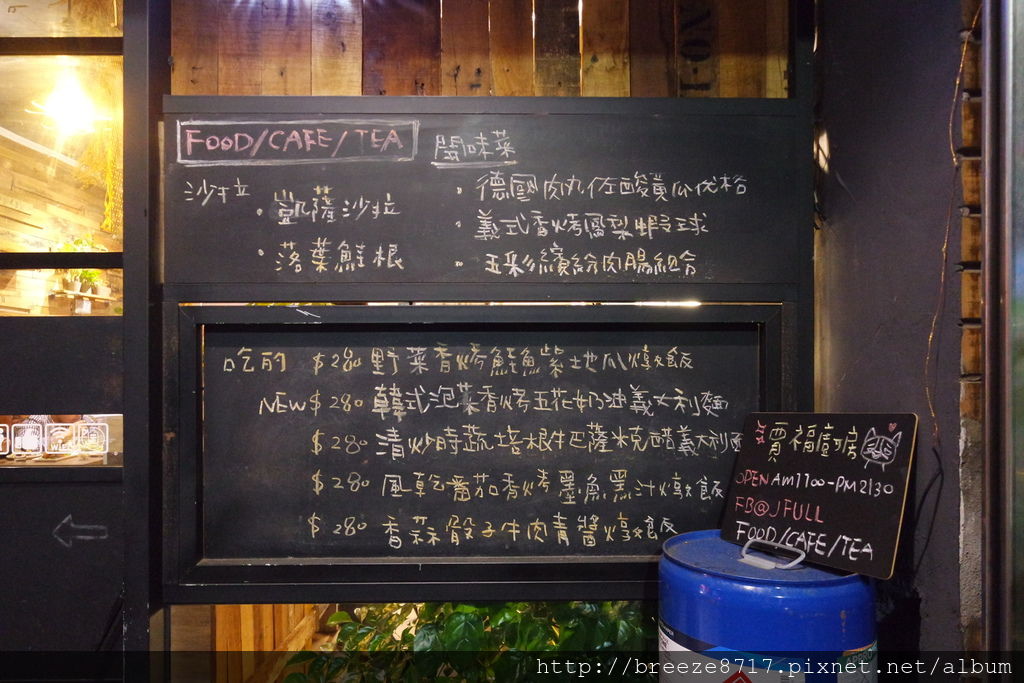 FOOD/CAFE/TEA
沙拉
· 凱薩沙拉
· 落葉鮭根
開味菜
· 德國肉丸佐酸黃瓜优格
· 義式香烤鳳梨蝦球
· 五彩繽紛肉腸組合
吃的 $280 野菜香烤鮭魚紫地瓜燉飯
NEW $280 韓式泡菜香烤五花奶油義大利麵
$280 清炒時蔬培根巴薩米克醋義大利
$280 風乾番茄香烤墨魚黑汁燉飯
$280 香蒜骰子牛肉青醬燉飯
賈福廚房
OPEN AM1100-PM2130
FB@JFULL
FOOD/CAFE/TEA
http://breeze8717.pixnet.net/album